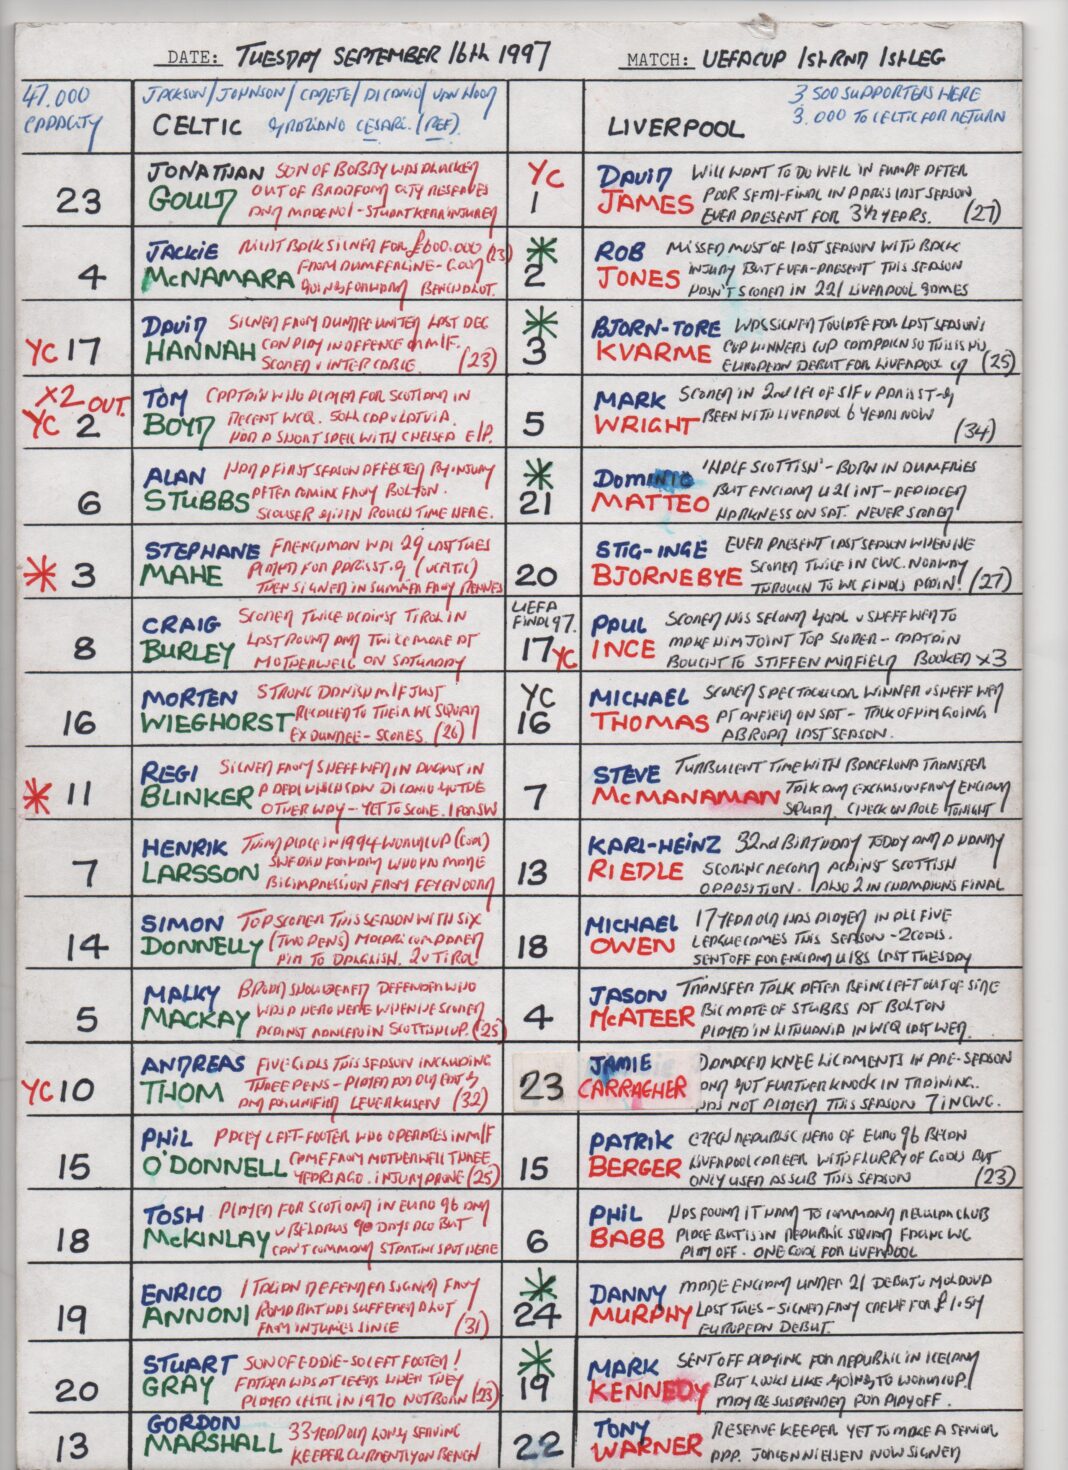 DATE: TUESDAY SEPTEMBER 16th 1997
MATCH: UEFA CUP 1st RND 1st LEG
47.000
CAPACITY
JACKSON/JOHNSON/CADETE/DICANIO/VAN HOOY
CELTIC GRAZIANO CESARI. (REF).
LIVERPOOL
3 500 SUPPORTERS HERE
3.000 TO CELTIC FOR RETURN
23
JONATHAN SON OF BOBBY WAS PLUCKED
GOULD OUT OF BRADFORD CITY RESERVES
AND MADE NO1 - STUART KERR INJURED
YC
1
DAVID WILL WANT TO DO WELL IN EUROPE AFTER
JAMES POOR SEMI-FINAL IN PARIS LAST SEASON
EVER PRESENT FOR 3½ YEARS. (27)
4
JACKIE RIGHT BACK SIGNED FOR £600.000 (23)
McNAMARA FROM DUNFERMLINE - GOOD
GOING FORWARD BENCHED A LOT.
2
ROB MISSED MOST OF LAST SEASON WITH BACK
JONES INJURY BUT EVER-PRESENT THIS SEASON
HASN'T SCORED IN 221 LIVERPOOL GAMES
YC 17
DAVID SIGNED FROM DUNDEE UNITED LAST DEC
HANNAH CAN PLAY IN DEFENCE OR M/F.
SCORED v INTER CABLE. (23)
3
BJORN-TORE WAS SIGNED TOO LATE FOR LAST SEASON'S
KVARME CUP WINNERS CUP CAMPAIGN SO THIS IS HIS
EUROPEAN DEBUT FOR LIVERPOOL (25)
X2 OUT.
YC 2
TOM CAPTAIN WHO PLAYED FOR SCOTLAND IN
BOYD RECENT WCQ. 50th CAP v LATVIA.
HAD A SHORT SPELL WITH CHELSEA E/P.
5
MARK SCORED IN 2nd LEG OF S/F v PARIS ST-G
WRIGHT BEEN WITH LIVERPOOL 6 YEARS NOW
(34)
6
ALAN HAD A FIRST SEASON AFFECTED BY INJURY
STUBBS AFTER COMING FROM BOLTON.
SCOUSER GIVEN ROUGH TIME HERE.
21
DOMINIC 'HALF SCOTTISH' - BORN IN DUMFRIES
MATTEO BUT ENGLAND U21 INT - REPLACED
HARKNESS ON SAT. NEVER SCORED
3
STEPHANE FRENCHMAN WAS 29 LAST TUES
MAHE PLAYED FOR PARIS ST.G (v CELTIC)
THEN SIGNED IN SUMMER FROM RENNES
20
STIG-INGE EVER PRESENT LAST SEASON WHEN HE
BJORNEBYE SCORED TWICE IN CWC. NORWAY
THROUGH TO WC FINALS AGAIN! (27)
8
CRAIG SCORED TWICE AGAINST TIROL IN
BURLEY LAST ROUND AND TWICE MORE AT
MOTHERWELL ON SATURDAY
UEFA
FINAL 97.
17 YC
PAUL SCORED HIS SECOND GOAL v SHEFF WED TO
INCE MAKE HIM JOINT TOP SCORER - CAPTAIN
BOUGHT TO STIFFEN MIDFIELD BOOKED X3
16
MORTEN STRONG DANISH M/F JUST
WIEGHORST RECALLED TO THEIR WC SQUAD
EX DUNDEE - SCORES. (26)
YC
16
MICHAEL SCORED SPECTACULAR WINNER v SHEFF WED
THOMAS AT ANFIELD ON SAT - TALK OF HIM GOING
ABROAD LAST SEASON.
11
REGI SIGNED FROM SHEFF WED IN AUGUST IN
BLINKER A DEAL WHICH SAW DI CANIO GO THE
OTHER WAY - YET TO SCORE.
7
STEVE TURBULENT TIME WITH BARCELONA TRANSFER
McMANAMAN TALK AND EXCLUSION FROM ENGLAND
SQUAD. CHECK ON ROLE TONIGHT
7
HENRIK THIRD PLACE IN 1994 WORLD CUP (GOAL)
LARSSON SWEDISH FORWARD WHO HAS MADE
BIG IMPRESSION FROM FEYENOORD
13
KARL-HEINZ 32nd BIRTHDAY TODAY AND A HANDY
RIEDLE SCORING RECORD AGAINST SCOTTISH
OPPOSITION. ALSO 2 IN CHAMPIONS FINAL
14
SIMON TOP SCORER THIS SEASON WITH SIX
DONNELLY (TWO PENS) MACARI COMPARED
HIM TO DALGLISH. 2 v TIROL!
18
MICHAEL 17 YEAR OLD HAS PLAYED IN ALL FIVE
OWEN LEAGUE GAMES THIS SEASON - 2 GOALS.
SENT OFF FOR ENGLAND U18S LAST TUESDAY
5
MALKY BROAD SHOULDERED DEFENDER WHO
MACKAY WAS A HERO HERE WHEN HE SCORED
AGAINST RANGERS IN SCOTTISH CUP. (25)
4
JASON TRANSFER TALK AFTER BEING LEFT OUT OF SIDE
McATEER BIG MATE OF STUBBS AT BOLTON
PLAYED IN LITHUANIA IN WCQ LAST WED.
YC 10
ANDREAS FIVE GOALS THIS SEASON INCLUDING
THOM THREE PENS - PLAYED FOR OLD EAST G
AND FOR UNIFIED LEVERKUSEN (32)
23
JAMIE DAMAGED KNEE LIGAMENTS IN PRE-SEASON
CARRAGHER AND GOT FURTHER KNOCK IN TRAINING.
HAS NOT PLAYED THIS SEASON 7 IN CWC.
15
PHIL PACEY LEFT-FOOTER WHO OPERATES IN M/F
O'DONNELL CAME FROM MOTHERWELL THREE
YEARS AGO. INJURY PRONE (25)
15
PATRIK CZECH REPUBLIC HERO OF EURO 96 BEGAN
BERGER LIVERPOOL CAREER WITH FLURRY OF GOALS BUT
ONLY USED AS SUB THIS SEASON (23)
18
TOSH PLAYED FOR SCOTLAND IN EURO 96 AND
McKINLAY v BELARUS 9 DAYS AGO BUT
CAN'T COMMAND STARTING SPOT HERE
6
PHIL HAS FOUND IT HARD TO COMMAND REGULAR CLUB
BABB PLACE BUT IS IN REPUBLIC SQUAD FACING WC
PLAY OFF. ONE GOAL FOR LIVERPOOL
19
ENRICO ITALIAN DEFENDER SIGNED FROM
ANNONI ROMA BUT HAS SUFFERED A LOT
FROM INJURIES SINCE (31)
24
DANNY MADE ENGLAND UNDER 21 DEBUT v MOLDOVA
MURPHY LAST TUES - SIGNED FROM CREWE FOR £1.5M
EUROPEAN DEBUT.
20
STUART SON OF EDDIE - SO LEFT FOOTED!
GRAY FATHER WAS AT LEEDS WHEN THEY
PLAYED CELTIC IN 1970 NOT BORN (23)
19
MARK SENT OFF PLAYING FOR REPUBLIC IN ICELAND
KENNEDY BUT LOOKS LIKE GOING TO WORLD CUP.
MAY BE SUSPENDED FOR PLAY OFF.
13
GORDON 33 YEAR OLD LONG SERVING
MARSHALL KEEPER CURRENTLY ON BENCH
22
TONY RESERVE KEEPER YET TO MAKE A SENIOR
WARNER APP. JORGEN NIELSEN NOW SIGNED